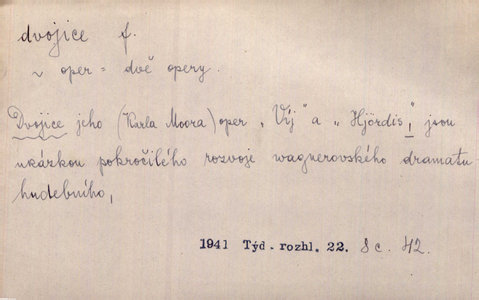 dvojice f.
~ oper = dvě opery.
Dvojice jeho (Karla Moora) oper „Vij" a „Hjördis", jsou
ukázkou pokročilého rozvoje wagnerovského dramatu
hudebního,
1941 Týd. rozhl. 22. 8 c. 42.